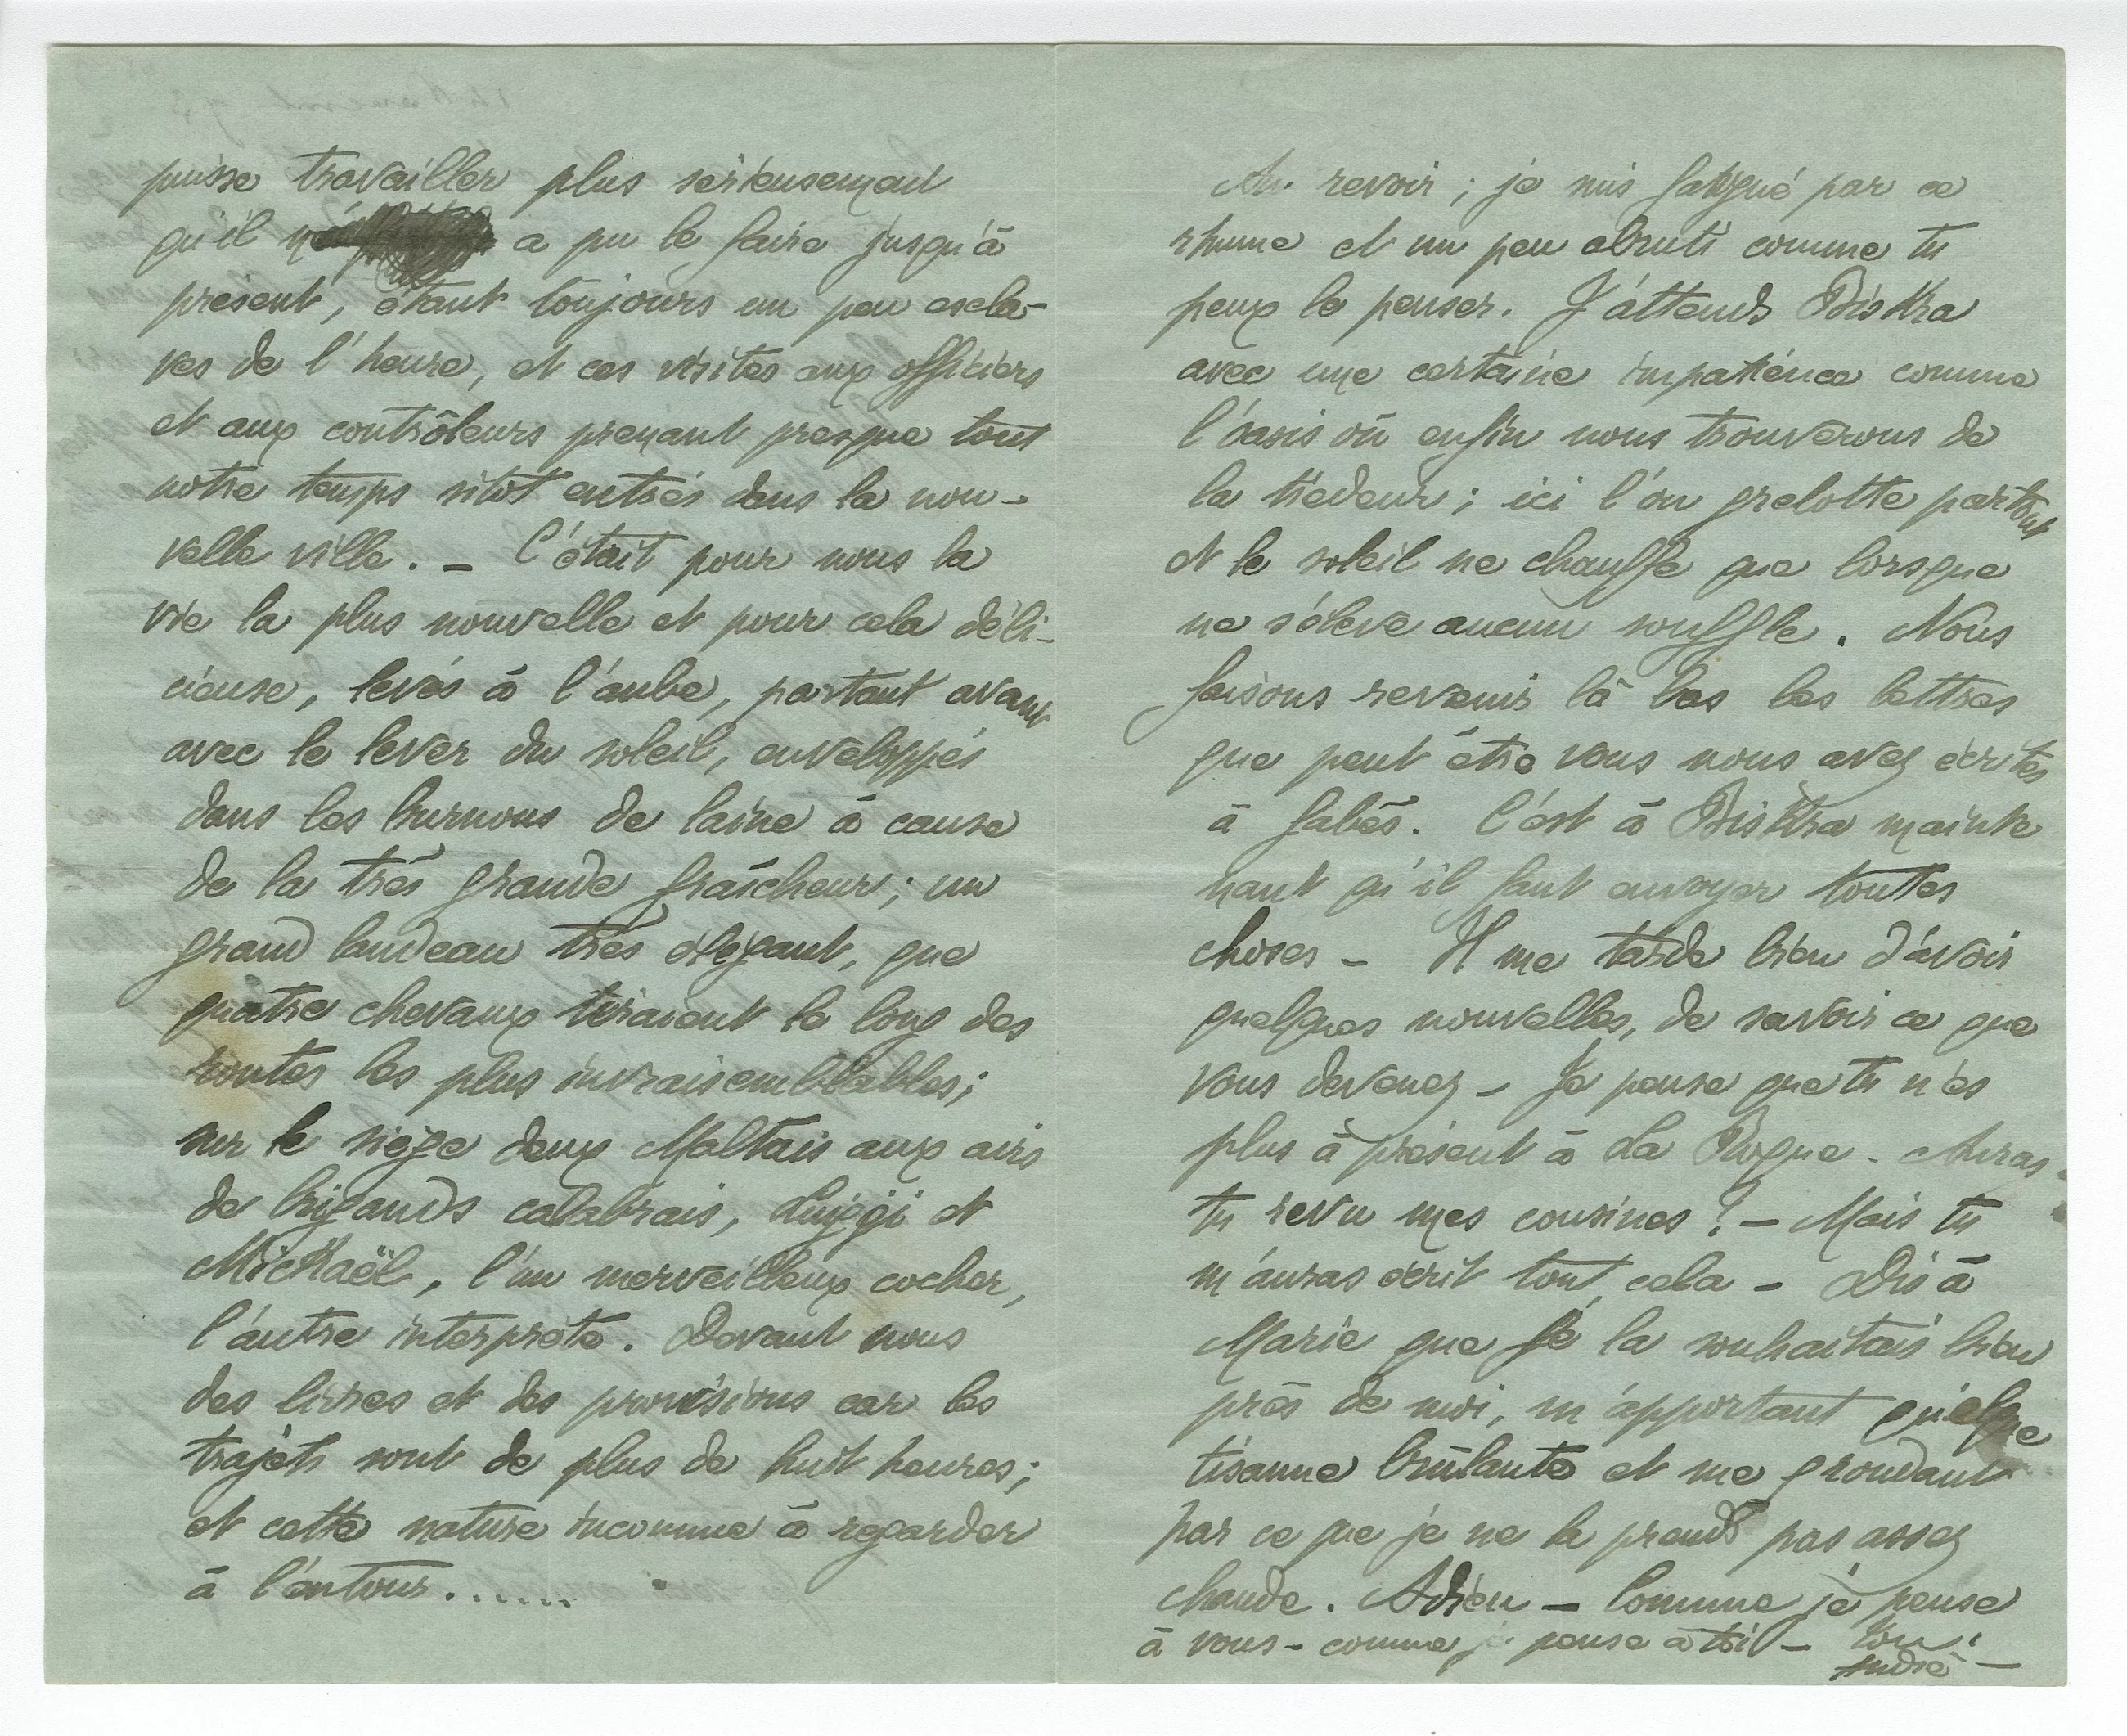 puisse travailler plus sérieusement
qu'il a pu le faire jusqu'à
présent, étant toujours un peu escla-
ves de l'heure, et ces visites aux officiers
et aux contrôleurs prenant presque tout
notre temps sitôt entrés dans la nou-
velle ville. _ C'était pour nous la
vie la plus nouvelle et pour cela déli-
cieuse, levés à l'aube, partant avant
avec le lever du soleil, enveloppés
dans les burnous de laine à cause
de la très grande fraîcheur; un
grand landeau très élégant, que
quatre chevaux tiraient le long des
routes les plus invraisemblables;
sur le siège deux Maltais aux airs
de brigands calabrais, Luiggi et
Mickaël, l'un merveilleux cocher,
l'autre interprète. Devant nous
des livres et des provisions car les
trajets sont de plus de huit heures;
et cette nature inconnue à regarder
à l'entour......
Au revoir; je suis fatigué par ce
rhume et un peu abruti comme tu
peux le penser. J'attends Biskra
avec une certaine impatience comme
l'oasis où enfin nous trouverons de
la tiédeur; ici l'on grelotte partout
et le soleil ne chauffe que lorsque
ne s'élève aucun souffle. Nous
faisons revenir là bas les lettres
que peut être vous nous avez écrites
à Gabès. C'est à Biskra mainte
nant qu'il faut envoyer toutes
choses - Il me tarde bien d'avoir
quelques nouvelles, de savoir ce que
vous devenez - Je pense que tu n'es
plus à présent à La Roque - Auras-
tu revu mes cousines? - Mais tu
m'auras écrit tout cela - Dis à
Marie que je la souhaitais bien
près de moi, m'apportant quelque
tisanne brûlante et me grondant
par ce que je ne la prends pas assez
chaude. Adieu - Comme je pense
à vous - comme je pense à toi - Ton
André -